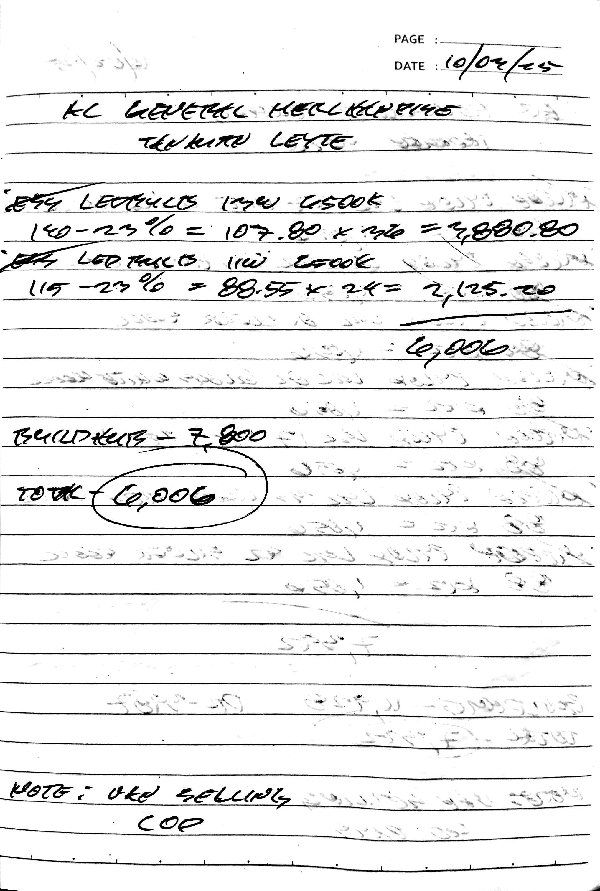 PAGE :
DATE : 10/04/25
KC GENERAL MERCHANDISE
TANAUAN LEYTE
LEDBULB 13W 6500K
140-23% = 107.80 x 36 = 3,880.80
LEDBULB 11W 6500K
115-23% = 88.55 x 24 = 2,125.20
6,006
BUILDHUB - 7,800
TOTAL - 6,006
NOTE: VAN SELLING
COD